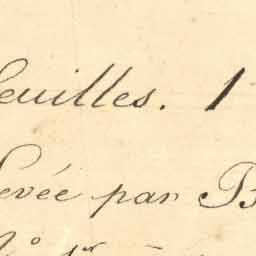 feuilles. 1
levée par B